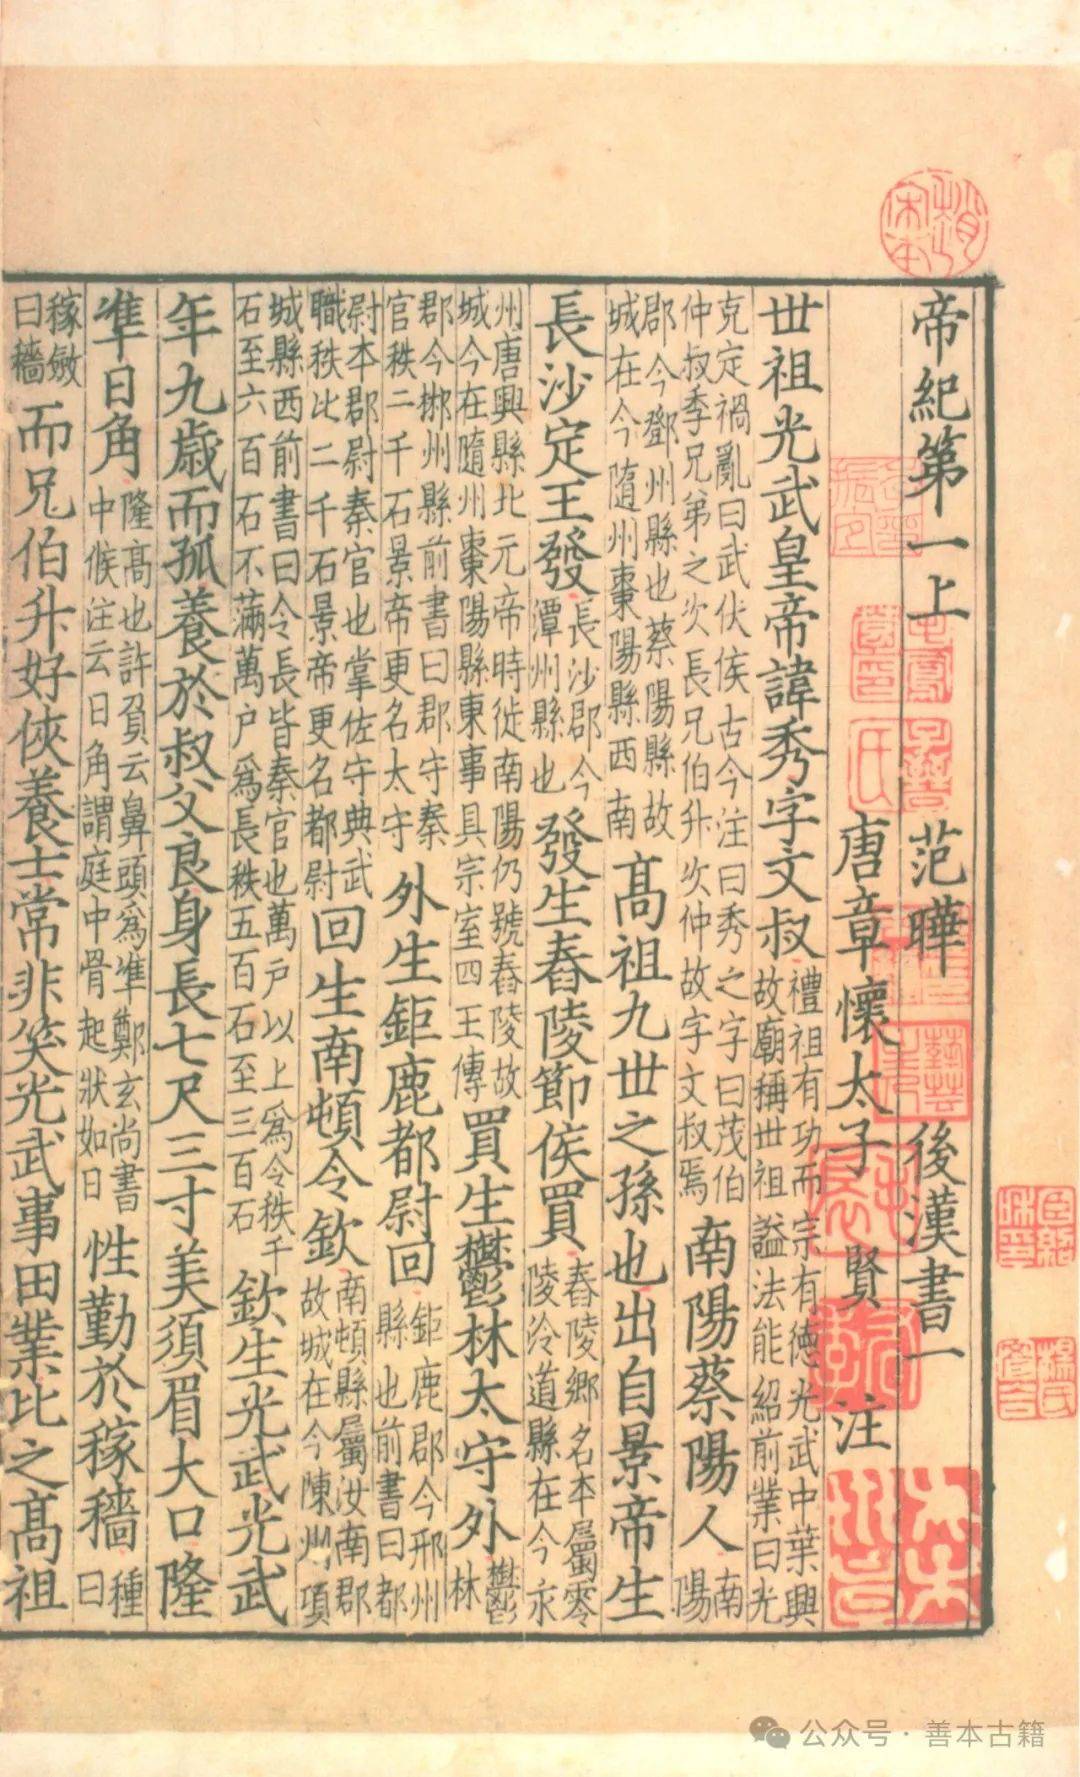 帝紀第一上 范曄 後漢書一
唐章懷太子賢 注
世祖光武皇帝諱秀字文叔禮祖有功而宗有德光武中葉興故廟稱世祖謚法能紹前業曰光
克定禍亂曰武伏侯古今注曰秀之字曰茂伯仲叔季兄弟之次長兄伯升次仲故字文叔焉南陽蔡陽人南陽
郡今鄧州縣也蔡陽縣故城在今隨州棗陽縣西南高祖九世之孫也出自景帝生
長沙定王發長沙郡今潭州縣也發生舂陵節侯買舂陵鄉名本屬零陵泠道縣在今永
州唐興縣北元帝時徙南陽仍號舂陵故城今在隨州棗陽縣東事具宗室四王傳買生鬱林太守外鬱林
郡今郴州縣前書曰郡守秦官秩二千石景帝更名太守外生鉅鹿都尉回鉅鹿郡今邢州縣也前書曰都
尉本郡尉秦官也掌佐守典武職秩比二千石景帝更名都尉回生南頓令欽南頓縣屬汝南郡故城在今陳州項
城縣西前書曰令長皆秦官也萬户以上爲令秩千石至六百石不滿萬户爲長秩五百石至三百石欽生光武光武
年九歲而孤養於叔父良身長七尺三寸美須眉大口隆
準日角隆高也許負云鼻頭爲準鄭玄尚書中候注云日角謂庭中骨起狀如日性勤於稼穡種曰
稼斂曰穡而兄伯升好俠養士常非笑光武事田業比之高祖
公众号·善本古籍